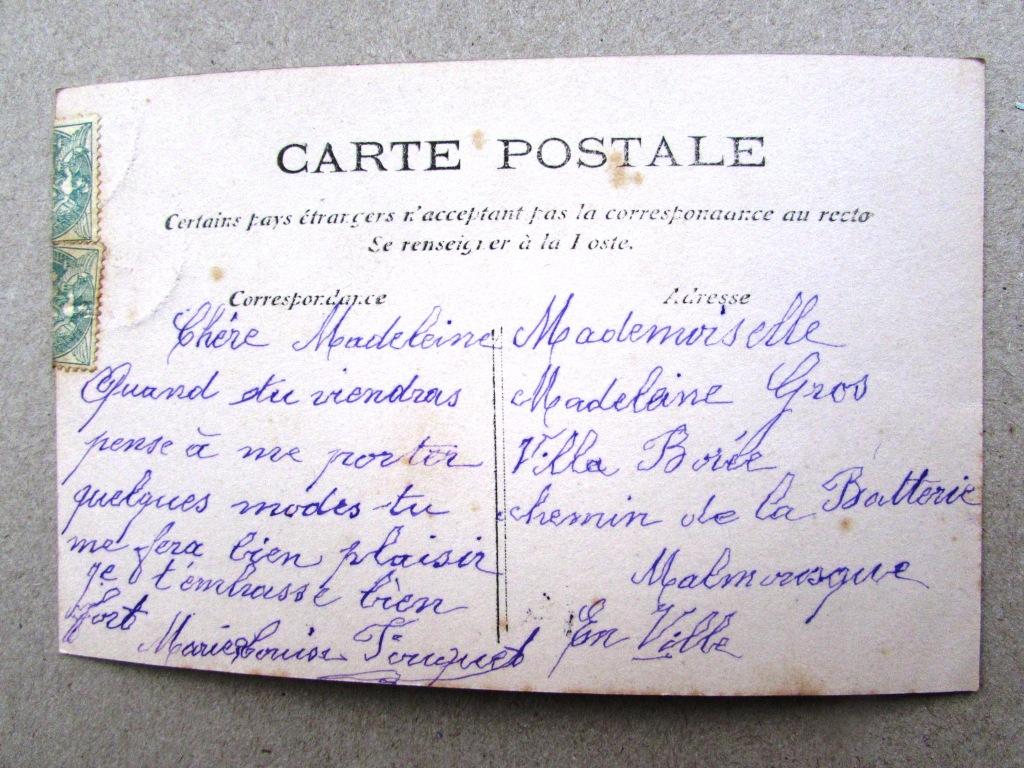 CARTE POSTALE
Certains pays étrangers n'acceptent pas la correspondance au recto
Se renseigner à la Poste.
Correspondance
Chère Madeleine
Quand tu viendras
pense à me porter
quelques modes tu
me fera bien plaisir
je t'embrasse bien
fort
Marie Louise Fouquet
Adresse
Mademoiselle
Madeleine Gros
Villa Borée
chemin de la Batterie
Malmousque
En Ville